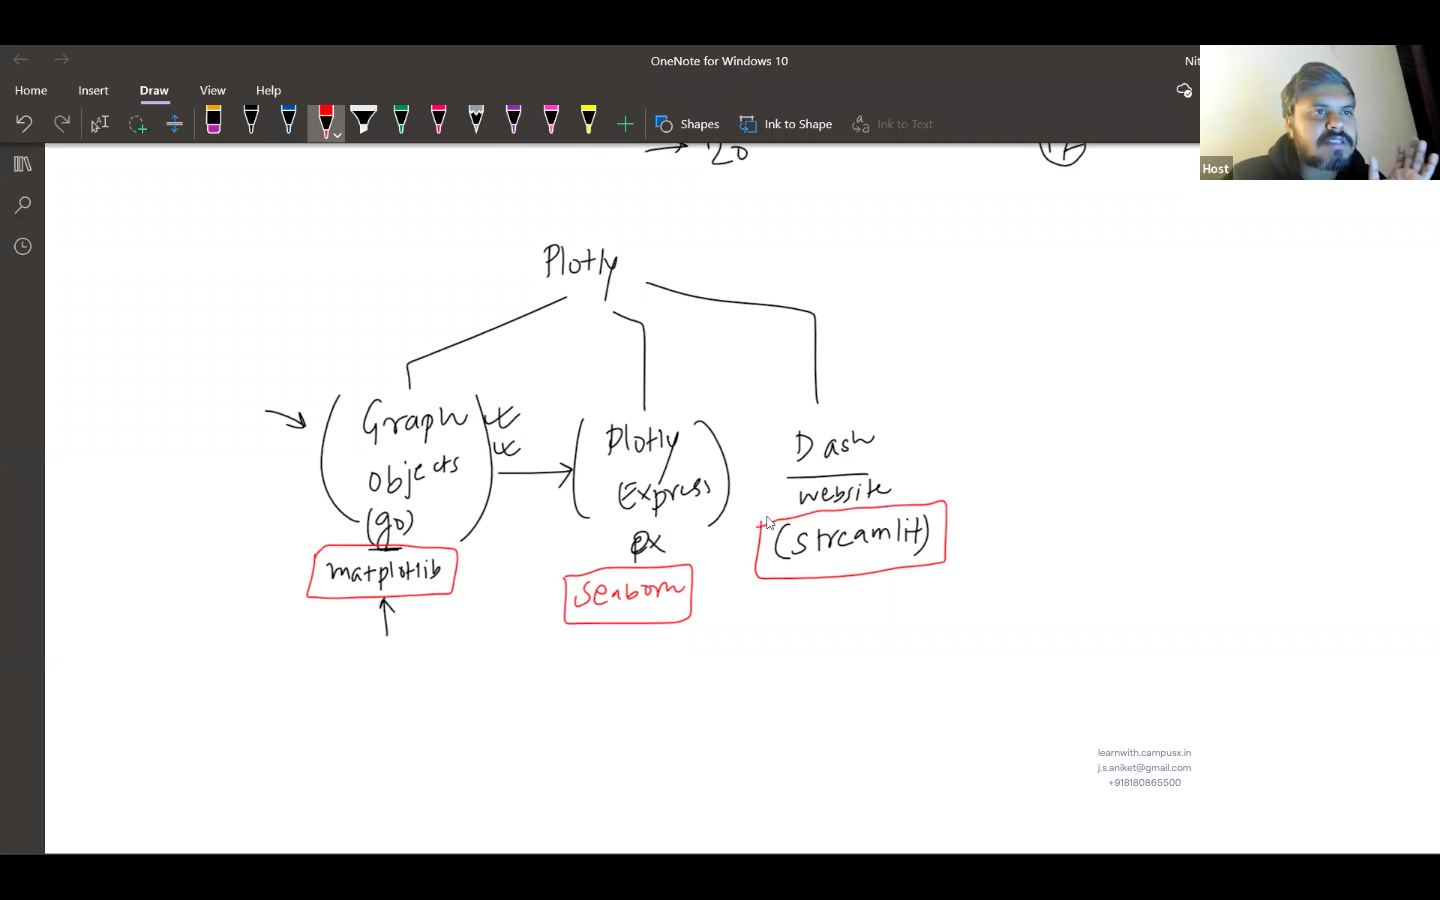 OneNote for Windows 10
Nit
Home Insert Draw View Help
Shapes Ink to Shape Ink to Text
Host
→ 20
Plotly
Graph
objects
(go)
matplotlib
Plotly
Express
px
seaborn
Dash
website
(streamlit)
learnwith.campusx.in
j.s.aniket@gmail.com
+918180865500